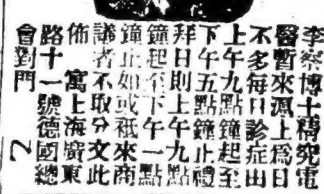 李察博士稿究電
醫暫來滬上爲日
不多每日診症由
上午九點鐘起至
下午五點鐘止禮
拜日則上午九點
鐘起至下午一點
鐘止如或祇來商
議者不取分文此
佈 寓上海廣東
路十一號德國總
會對門 乙